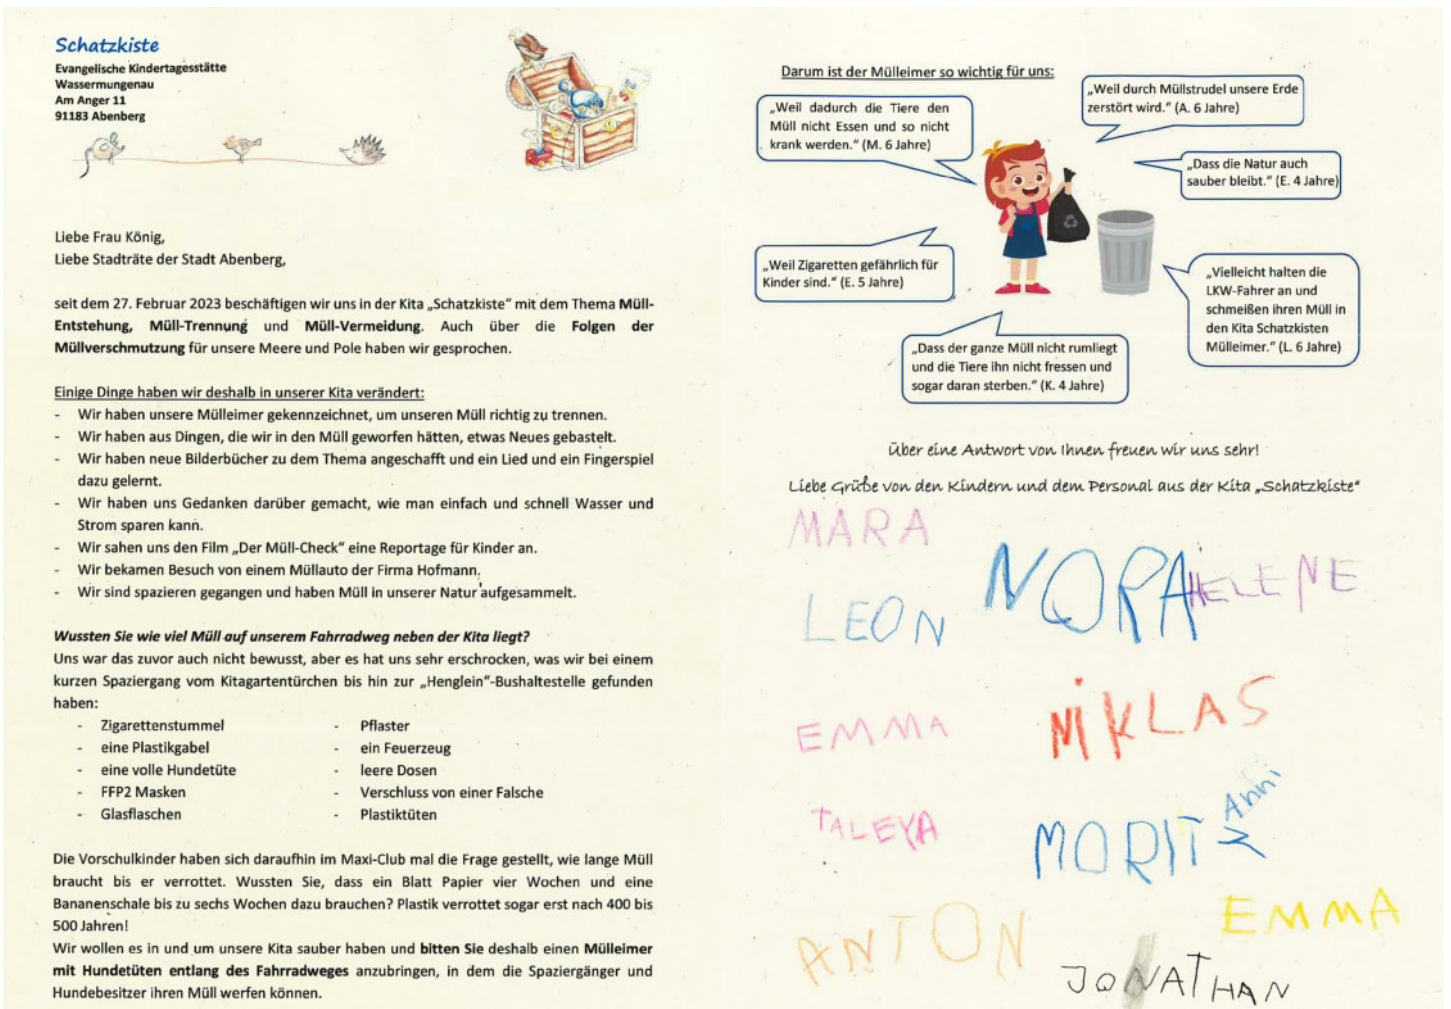 Schatzkiste
Evangelische Kindertagesstätte
Wassermungenau
Am Anger 11
91183 Abenberg
Liebe Frau König,
Liebe Stadträte der Stadt Abenberg,
seit dem 27. Februar 2023 beschäftigen wir uns in der Kita „Schatzkiste“ mit dem Thema Müll-
Entstehung, Müll-Trennung und Müll-Vermeidung. Auch über die Folgen der
Müllverschmutzung für unsere Meere und Pole haben wir gesprochen.
Einige Dinge haben wir deshalb in unserer Kita verändert:
- Wir haben unsere Mülleimer gekennzeichnet, um unseren Müll richtig zu trennen.
- Wir haben aus Dingen, die wir in den Müll geworfen hätten, etwas Neues gebastelt.
- Wir haben neue Bilderbücher zu dem Thema angeschafft und ein Lied und ein Fingerspiel
dazu gelernt.
- Wir haben uns Gedanken darüber gemacht, wie man einfach und schnell Wasser und
Strom sparen kann.
- Wir sahen uns den Film „Der Müll-Check“ eine Reportage für Kinder an.
- Wir bekamen Besuch von einem Müllauto der Firma Hofmann.
- Wir sind spazieren gegangen und haben Müll in unserer Natur aufgesammelt.
Wussten Sie wie viel Müll auf unserem Fahrradweg neben der Kita liegt?
Uns war das zuvor auch nicht bewusst, aber es hat uns sehr erschrocken, was wir bei einem
kurzen Spaziergang vom Kitagartentürchen bis hin zur „Henglein“-Bushaltestelle gefunden
haben:
- Zigarettenstummel
- eine Plastikgabel
- eine volle Hundetüte
- FFP2 Masken
- Glasflaschen
- Pflaster
- ein Feuerzeug
- leere Dosen
- Verschluss von einer Falsche
- Plastiktüten
Die Vorschulkinder haben sich daraufhin im Maxi-Club mal die Frage gestellt, wie lange Müll
braucht bis er verrottet. Wussten Sie, dass ein Blatt Papier vier Wochen und eine
Bananenschale bis zu sechs Wochen dazu brauchen? Plastik verrottet sogar erst nach 400 bis
500 Jahren!
Wir wollen es in und um unsere Kita sauber haben und bitten Sie deshalb einen Mülleimer
mit Hundetüten entlang des Fahrradweges anzubringen, in dem die Spaziergänger und
Hundebesitzer ihren Müll werfen können.
Darum ist der Mülleimer so wichtig für uns:
„Weil dadurch die Tiere den
Müll nicht Essen und so nicht
krank werden.“ (M. 6 Jahre)
„Weil durch Müllstrudel unsere Erde
zerstört wird.“ (A. 6 Jahre)
„Dass die Natur auch
sauber bleibt.“ (E. 4 Jahre)
„Weil Zigaretten gefährlich für
Kinder sind.“ (E. 5 Jahre)
„Vielleicht halten die
LKW-Fahrer an und
schmeißen ihren Müll in
den Kita Schatzkisten
Mülleimer.“ (L. 6 Jahre)
„Dass der ganze Müll nicht rumliegt
und die Tiere ihn nicht fressen und
sogar daran sterben.“ (K. 4 Jahre)
Über eine Antwort von Ihnen freuen wir uns sehr!
Liebe Grüße von den Kindern und dem Personal aus der Kita „Schatzkiste“
MARA
NORA
HELENE
LEON
EMMA
NIKLAS
TALEYA
MORITZ
Anni
EMMA
ANTON
JONATHAN